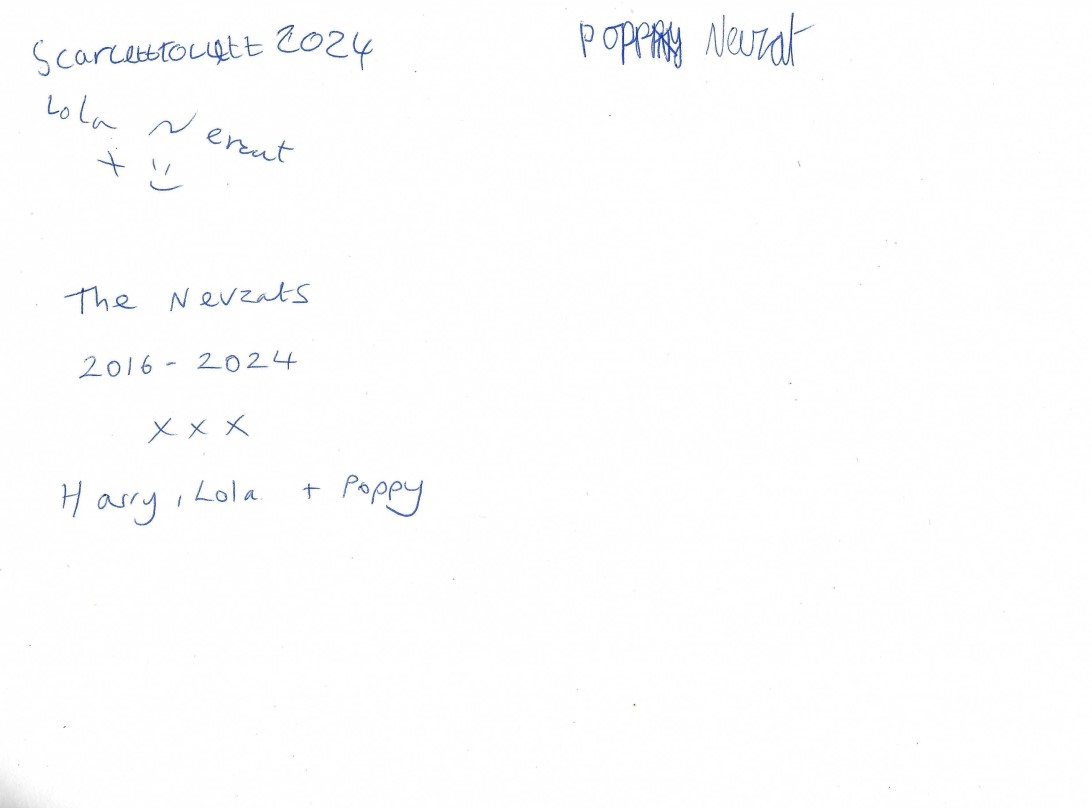 2024
POPPY Nevzat
Lola Nevzat
+ :)
The Nevzats
2016 - 2024
x x x
Harry, Lola + Poppy